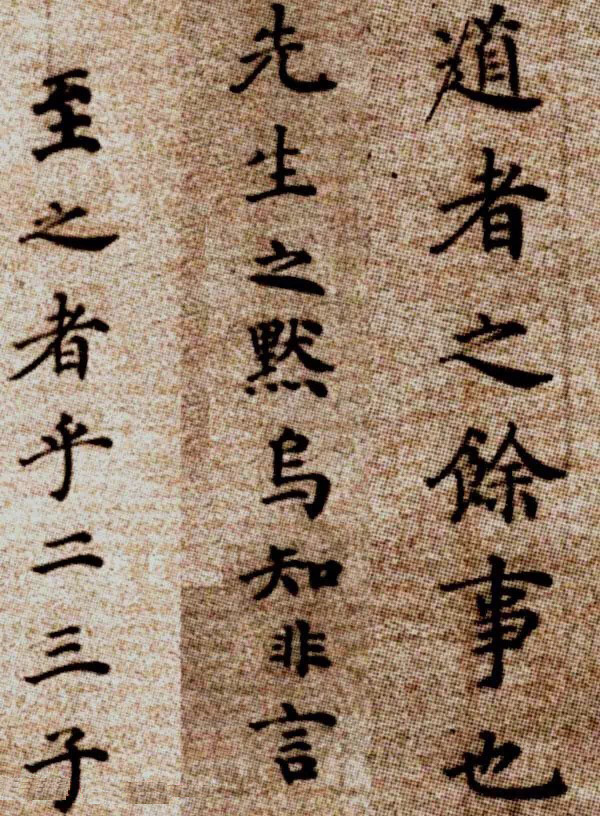 道者之餘事也
先生之黙烏知非言
至之者乎二三子